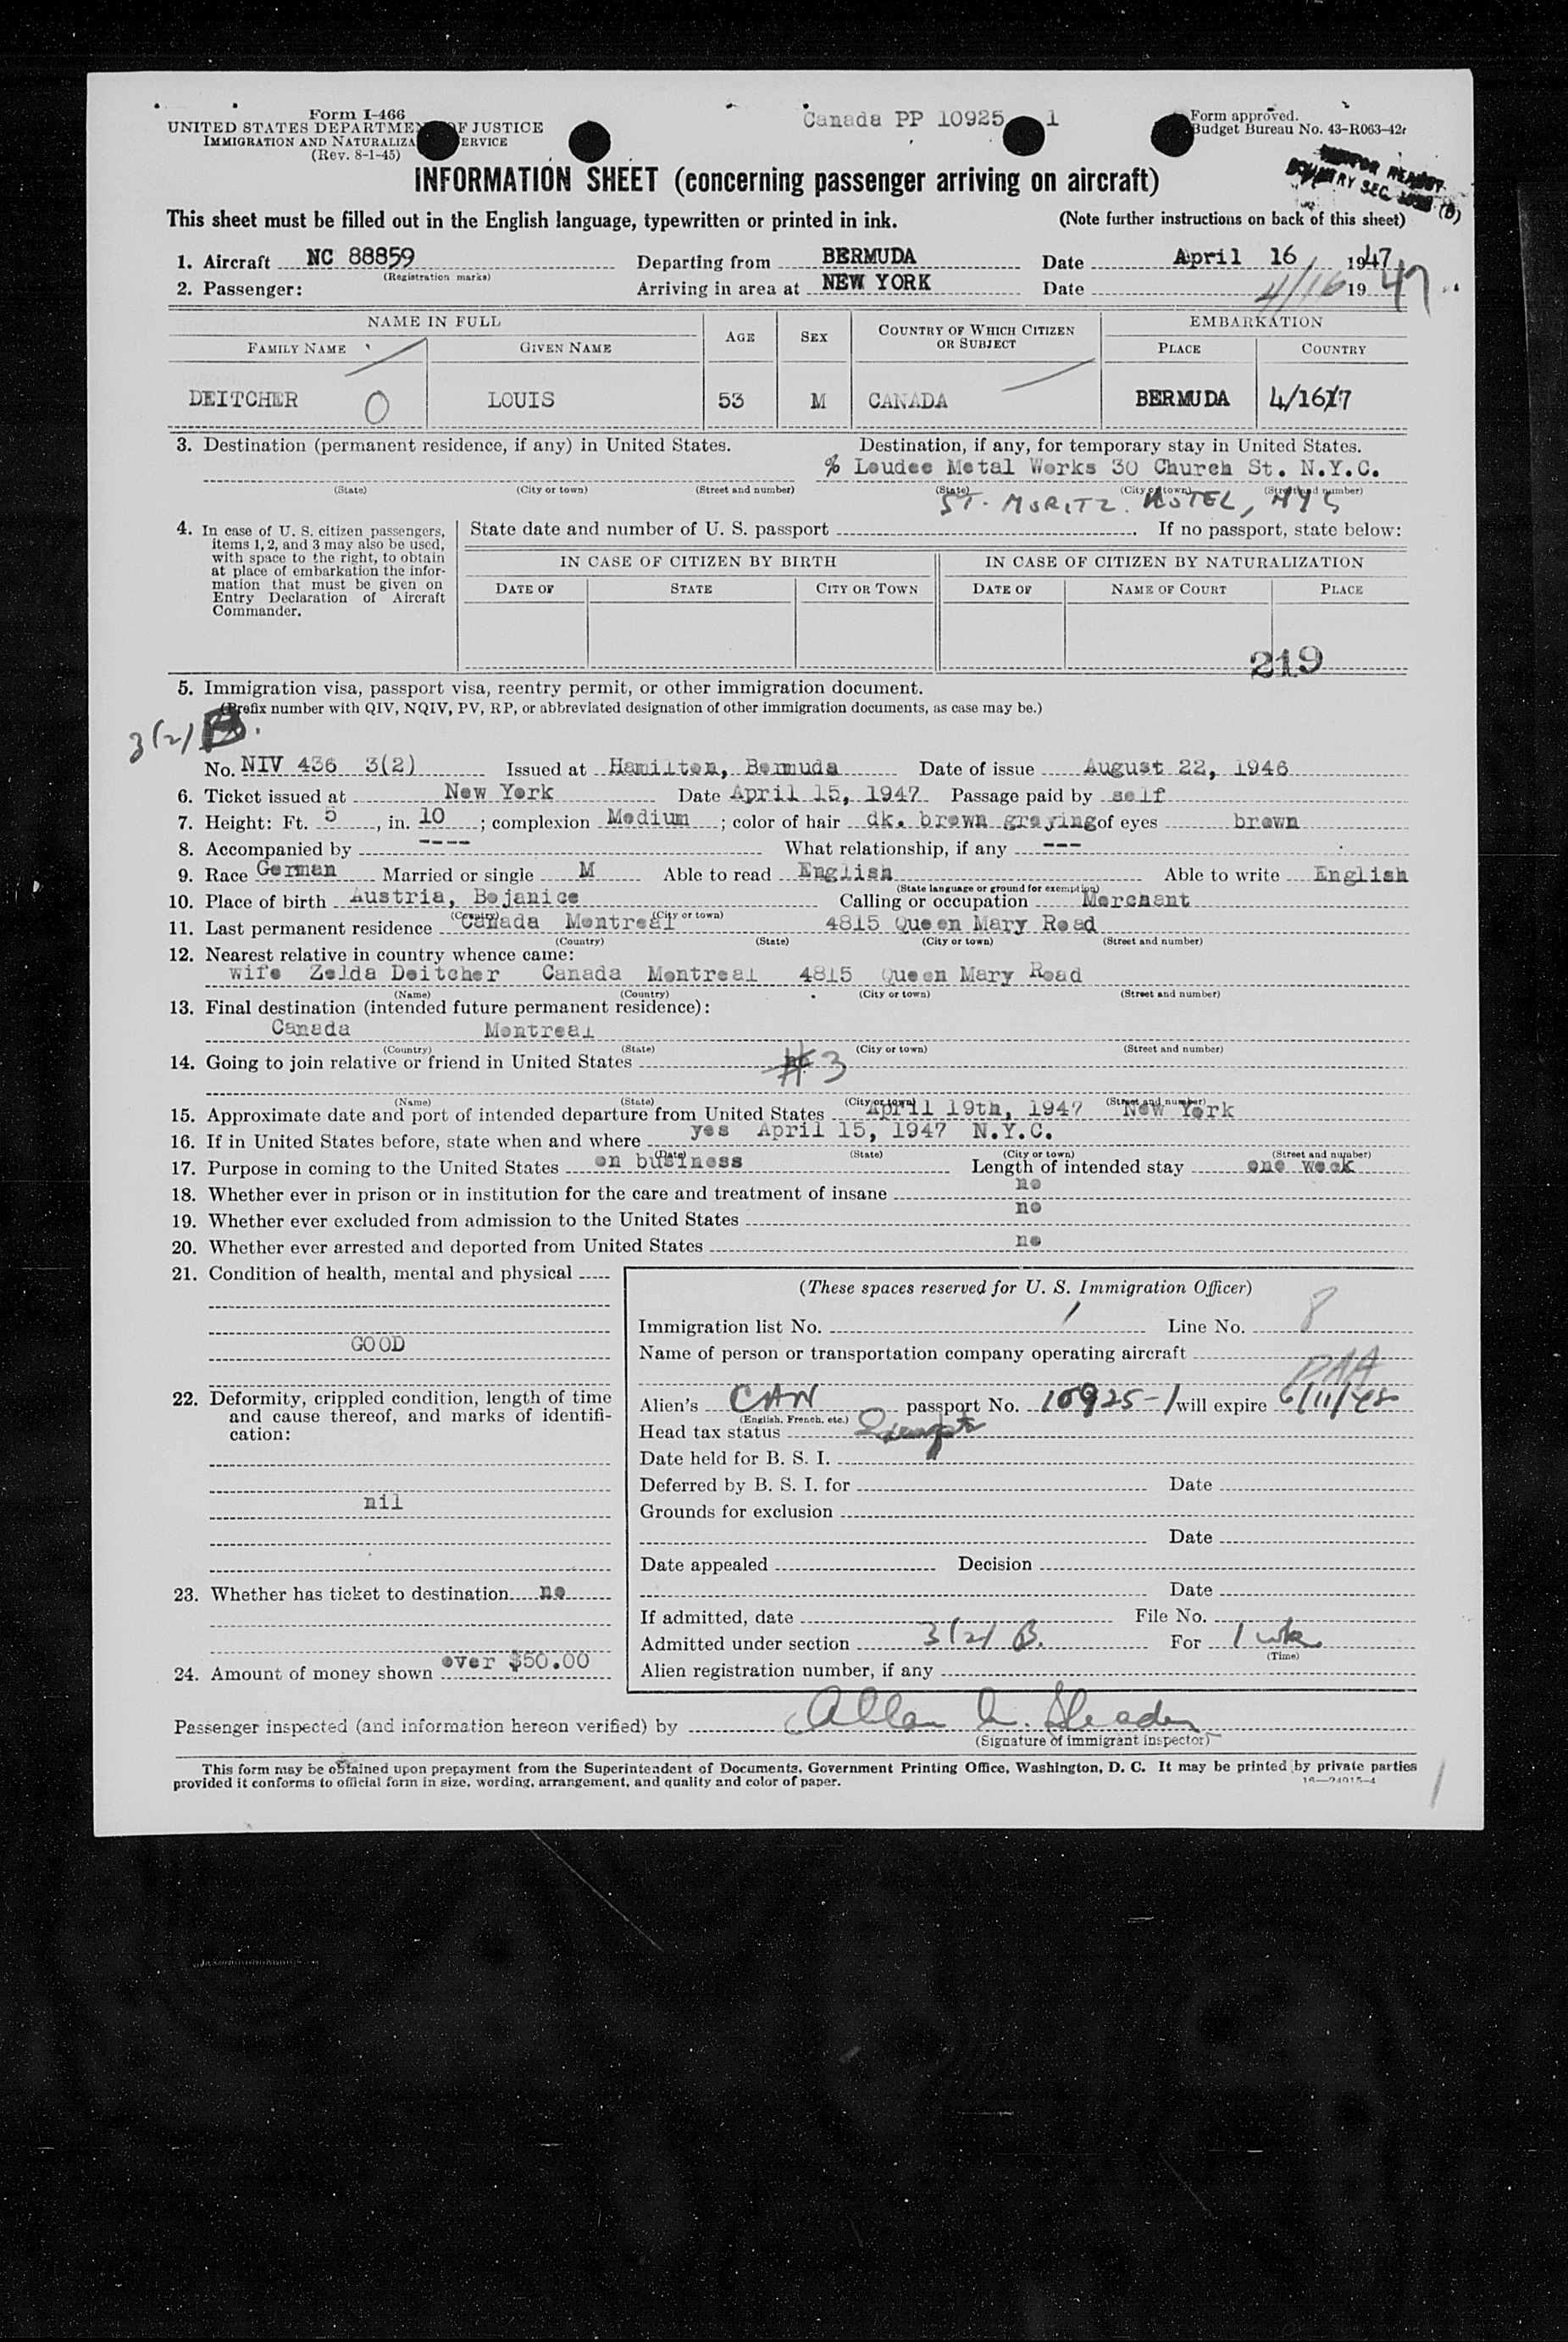 Form I-466
UNITED STATES DEPARTMENT OF JUSTICE
IMMIGRATION AND NATURALIZA ERVICE
(Rev. 8-1-45)
Canada PP 10925 1
Form approved.
Budget Bureau No. 43-R063-42
INFORMATION SHEET (concerning passenger arriving on aircraft)
This sheet must be filled out in the English language, typewritten or printed in ink. (Note further instructions on back of this sheet)
1. Aircraft NC 88859 Departing from BERMUDA Date April 16, 1947
(Registration marks)
2. Passenger: Arriving in area at NEW YORK Date 4/16 1947
NAME IN FULL AGE SEX COUNTRY OF WHICH CITIZEN OR SUBJECT EMBARKATION
FAMILY NAME GIVEN NAME PLACE COUNTRY
DEITCHER O LOUIS 53 M CANADA BERMUDA 4/16
3. Destination (permanent residence, if any) in United States. Destination, if any, for temporary stay in United States.
% Loudee Metal Works 30 Church St. N.Y.C.
(State) (City or town) (Street and number) (State) (City or town) (Street and number)
ST. MORITZ HOTEL, NYC
4. In case of U. S. citizen passengers, items 1, 2, and 3 may also be used, with space to the right, to obtain at place of embarkation the information that must be given on Entry Declaration of Aircraft Commander.
State date and number of U. S. passport . If no passport, state below:
IN CASE OF CITIZEN BY BIRTH IN CASE OF CITIZEN BY NATURALIZATION
DATE OF STATE CITY OR TOWN DATE OF NAME OF COURT PLACE
219
5. Immigration visa, passport visa, reentry permit, or other immigration document.
(Prefix number with QIV, NQIV, PV, RP, or abbreviated designation of other immigration documents, as case may be.)
3(2) B.
No. NIV 436 3(2) Issued at Hamilton, Bermuda Date of issue August 22, 1946
6. Ticket issued at New York Date April 15, 1947 Passage paid by self
7. Height: Ft. 5, in. 10; complexion Medium; color of hair dk. brown graying of eyes brown
8. Accompanied by ---- What relationship, if any ---
9. Race German Married or single M Able to read English Able to write English
(State language or ground for exemption)
10. Place of birth Austria, Bojanice Calling or occupation Merchant
(Country) (City or town)
11. Last permanent residence Canada Montreal 4815 Queen Mary Road
(Country) (State) (City or town) (Street and number)
12. Nearest relative in country whence came:
wife Zelda Deitcher Canada Montreal 4815 Queen Mary Road
(Name) (Country) (City or town) (Street and number)
13. Final destination (intended future permanent residence):
Canada Montreal
(Country) (State) (City or town) (Street and number)
14. Going to join relative or friend in United States no #3
(Name) (State) (City or town) (Street and number)
15. Approximate date and port of intended departure from United States April 19th, 1947 New York
16. If in United States before, state when and where yes April 15, 1947 N.Y.C.
(Date) (State) (City or town) (Street and number)
17. Purpose in coming to the United States on business Length of intended stay one week
18. Whether ever in prison or in institution for the care and treatment of insane no
19. Whether ever excluded from admission to the United States no
20. Whether ever arrested and deported from United States no
21. Condition of health, mental and physical
GOOD
22. Deformity, crippled condition, length of time and cause thereof, and marks of identification:
nil
23. Whether has ticket to destination no
24. Amount of money shown over $50.00
(These spaces reserved for U. S. Immigration Officer)
Immigration list No. 1 Line No. 8
Name of person or transportation company operating aircraft
PAA
Alien's CAN passport No. 10925-1 will expire 6/11/48
(English, French, etc.)
Head tax status Exempt
Date held for B. S. I.
Deferred by B. S. I. for Date
Grounds for exclusion
Date
Date appealed Decision
Date
If admitted, date File No.
Admitted under section 3(2) B. For 1 wk
(Time)
Alien registration number, if any
Passenger inspected (and information hereon verified) by Allan
(Signature of immigrant inspector)
This form may be obtained upon prepayment from the Superintendent of Documents, Government Printing Office, Washington, D. C. It may be printed by private parties
provided it conforms to official form in size, wording, arrangement, and quality and color of paper.
16—24915-4